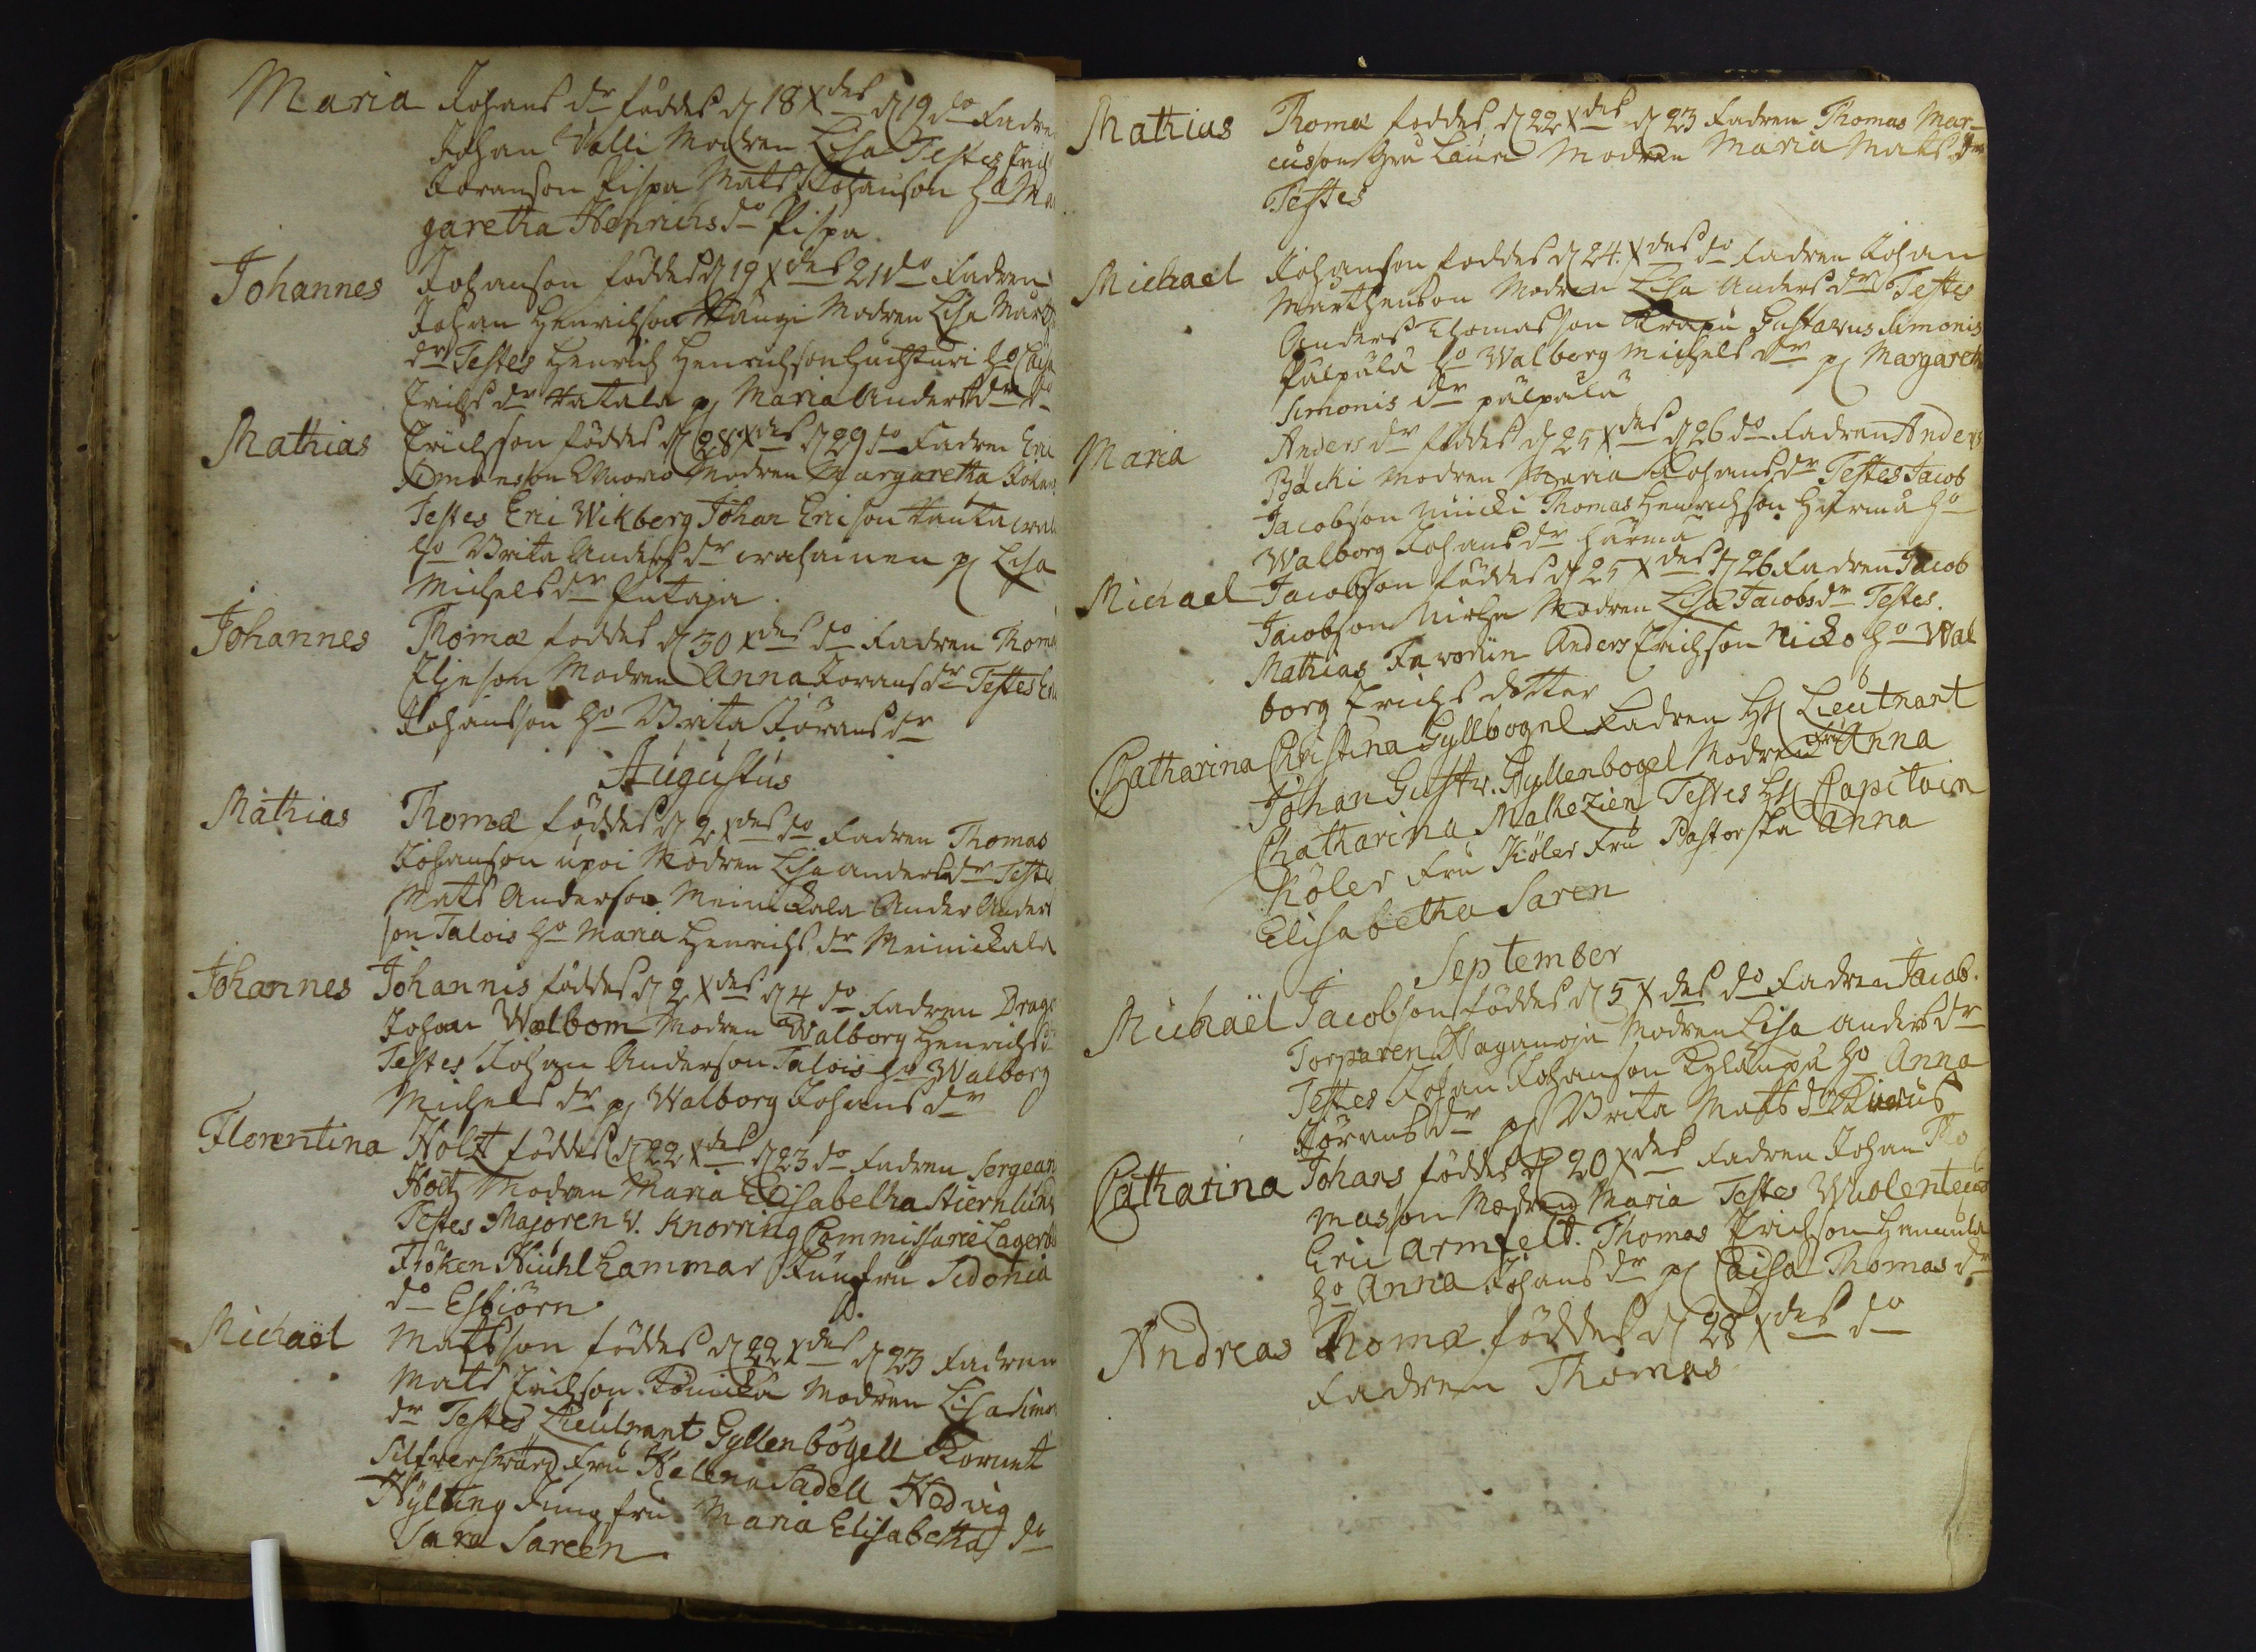 Maria Johans dr föddes d 18 Xdes d 19 do Fadren
Johan Valli Modren Lisa Testes Erich
Göranson Pispa Mats Johanson ho Mar
garetha Henrichs do Pispa
Johannes Johanson föddes d 19 Xdes 21 do Fadren
Johan Henrichson Modren Lisa Märth
dr Testes Henrich Henrichson ho Caisa
Erichs dr Hatala pj Maria Anders dr do
Mathias Erichson föddes d 28 Xdes d 29 do Fadren Eric
Simonsson Modren Margaretha Johan
Testes Eric Wikberg Johan Ericson
ho Brita Anders dr pj Lisa
Michels dr Putaja
Johannes Thomæ föddes d 30 Xdes do Fadren Thomas
Eljeson Modren Anna Jörans dr Testes
Johansson ho Brita Jörans dr
Augustus
Mathias Thomæ föddes d 2 Xdes do Fadren Thomas
Johanson upoi Modren Lisa anders dr Testes
Mats Anderson Meinickala Anders Anders
son Talois ho Maria Henrichs dr Meinickala
Johannes Johannis föddes d 2 Xdes d 4 do Fadren Drag
Johan Walbom Modren Walborg Henrichs d
Testes Johan Anderson Talois ho Walborg
Michels dr pj Walborg Johans dr
Florentina Holtz föddes d 22 Xdes d 23 do Fadren Sergean
Holtz Modren Maria Elisabetha Stiernlund
Testes Majoren v. Knorring Commissarie Lager
Fröken Hiuhlhammar Junfru Sidonia
do Esbiörn
Michaël Matsson föddes d 22 Xdes d 23 Fadren
Mats Erichson Modren Lisa Simon
dr Testes Lieutnant Gyllenbögell Kornet
Silfversvärd Fru Helena Sadell Hedvig
Hylting Jungfru Maria Elisabetha do
Sara Sareen
Mathias Thomæ föddes d 22 Xdes d 23 Fadren Thomas Mar-
cusson Modren Maria Mats dr
Testes
Michael Johanson föddes d 24. Xdes do Fadren Johan
Märthenson Modren Lisa Anders dr Testes
Anders Thomasson Krapu Gustavus Simonis
Pulpula ho Walborg Michels dr pj Margareta
Simonis dr pulpula
Maria Anders dr föddes d 25 Xdes d 26 do Fadren Anders
Bäcki Modren Maria Johans dr Testes Jacob
Jacobson Thomas Henrichson Härmä ho
Walborg Johans dr Härmä
Michael Jacobson föddes d 25 Xdes d 26 Fadren Jacob
Jacobson Modren Lisa Jacobs dr Testes.
Mathias Favorin Anders Erichson Nicko ho Wal
borg Erichs dotter
Catharina Christina Gyllbögel Fadren Hr Lieutnant
Johan Gustv. Gyllenbögel Modren Fru Anna
Chatharina Mallezien Testes Hr Capitain
Köler Fru Köler Fru Pastorska Anna
Elisabetha Saren
September
Michaël Jacobson föddes d 5 Xdes do Fadren Jacob.
Torparen Haganoja Modren Lisa anders dr
Testes Johan Johanson Kylänpä ho Anna
Jörans dr pj Brita Mats dr
Catharina Johans föddes d 20 Xdes Fadren Johan Tho
masson Modren Maria Testes Wolenteur
Eric Armfelt. Thomas Erichson
ho Anna Johans dr pj Caisa Thomas dr
Andreas Thomæ föddes d 28 Xdes do
Fadren Thomas